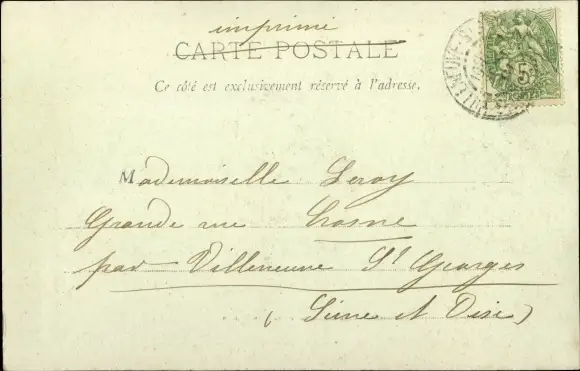 imprimé
CARTE POSTALE
Ce côté est exclusivement réservé à l'adresse.
5
Mademoiselle Leroy
Grande rue Crosne
par Villeneuve St Georges
(Seine et Oise)